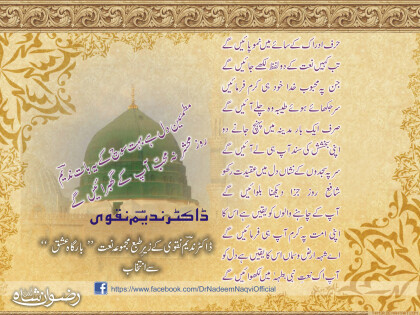 حرف ادراک کے سائے میں نمو پائیں گے
تب کہیں نعت کے دو لفظ لکھے جائیں گے
جن پہ محبوب خدا خود ہی کرم فرمائیں
سر جھکائے ہوئے طیبہ وہ چلے آئیں گے
صرف ایک بار مدینہ میں پہنچ جانے دو
اپنی بخشش کی سند آپ ہی لے آئیں گے
سر پہ سجدوں کے نشاں دل میں عقیدت رکھو
شافع روز جزا دیکھنا بلوائیں گے
آپ کے چاہنے والوں کو یقیں ہے اس کا
اپنی امت پہ کرم آپ ہی فرمائیں گے
اے شہہ ارض و سماں بس ہے یقیں دل کو
آپ اک نعت ہی طیبہ میں لکھوائیں گے
مطمئن دل ہے بہت سوچ کے یہ بات ندیم
روز محشر آپ کے
ڈاکٹر ندیم نقوی
ڈاکٹر ندیم نقوی کے زیر طبع مجموعہ نعت " بارگاہ عشق "
سے انتخاب
https://www.facebook.com/DrNadeemNaqviOfficial
رضوان شاہ